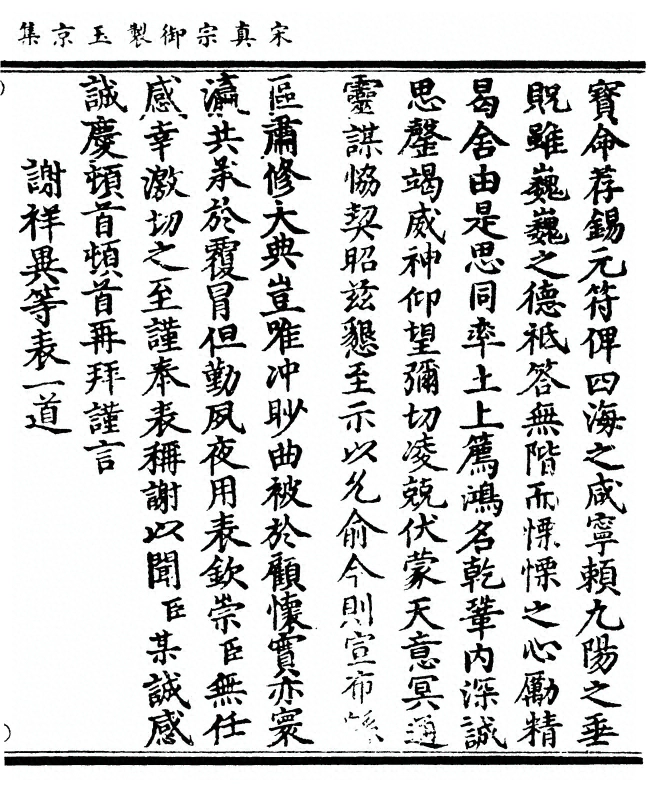 宋真宗御製玉京集
寶命荐錫元符俾四海之咸寧賴九陽之垂
貺雖巍巍之德祗答無階而慄慄之心勵精
曷舍由是思同率土上薦鴻名乾鞏內深誠
思罄竭威神仰望彌切凌兢伏蒙天意冥通
靈謀恊契昭兹懇至示以允俞今則宣布
區肅修大典豈唯冲眇曲被於顧懷實亦寰
瀛共承於覆冐但勤夙夜用表欽崇臣無任
感幸激切之至謹奉表稱謝以聞臣某誠感
誠慶頓首頓首再拜謹言
謝祥異等表一道